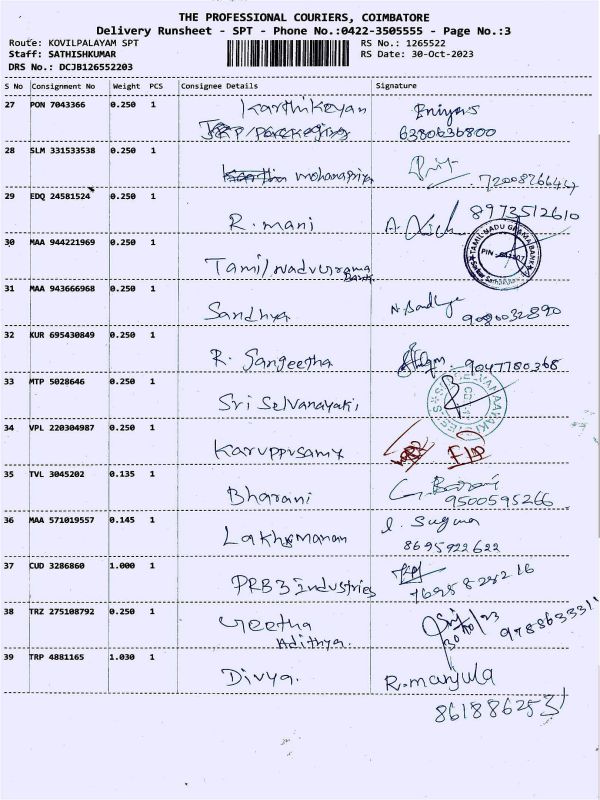 THE PROFESSIONAL COURIERS, COIMBATORE
Delivery Runsheet - SPT - Phone No.:0422-3505555 - Page No.:3
Route: KOVILPALAYAM SPT
Staff: SATHISHKUMAR
DRS No.: DCJB126552203
RS No.: 1265522
RS Date: 30-Oct-2023
S No Consignment No Weight PCS Consignee Details Signature
27 PON 7043366 0.250 1 Karthikeyan
6380636800
28 SLM 331533538 0.250 1 mohanapriya
7200876647
29 EDQ 24581524 0.250 1 R. mani
8973512610
30 MAA 944221969 0.250 1 Tamilnadu grama Bank
TAMIL NADU GRAMA BANK
31 MAA 943666968 0.250 1 Sandhya
9080032890
32 KUR 695430849 0.250 1 R. Sangeetha
9047780368
33 MTP 5028646 0.250 1 Sri Selvanayaki
34 VPL 220304987 0.250 1 Karuppusamy
35 TVL 3045202 0.135 1 Bharani
9500595266
36 MAA 571019557 0.145 1 Lakhsmanan l. Suguna
8695922622
37 CUD 3286860 1.000 1 PRB 3 industries
38 TRZ 275108792 0.250 1 Geetha
Adithya.
39 TRP 4881165 1.030 1 Divya. R. manjula
8618862531